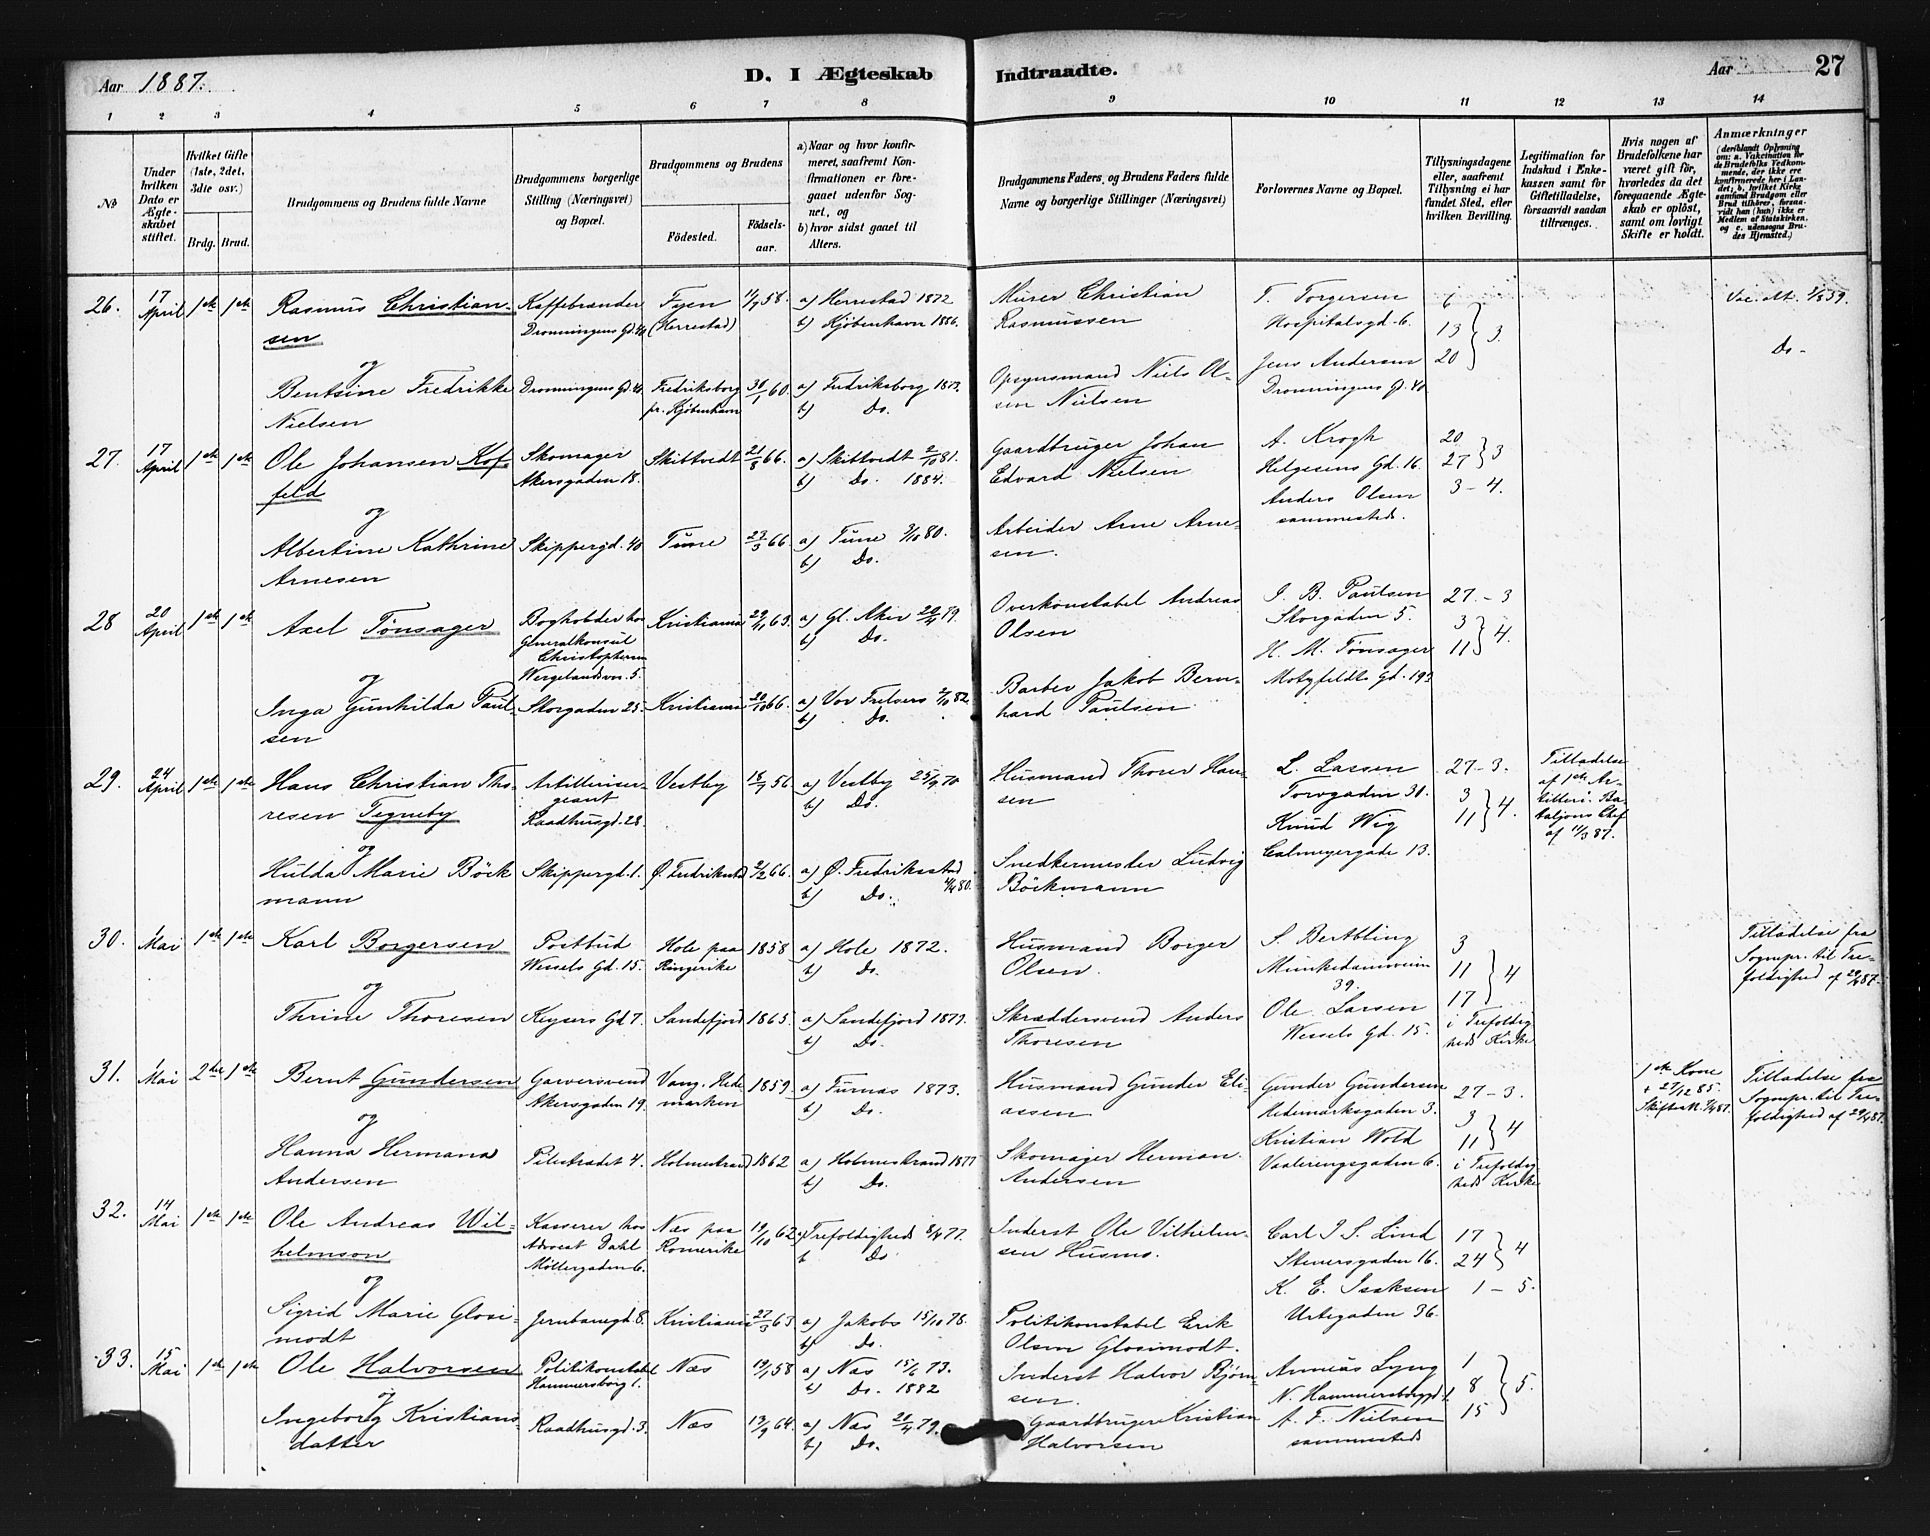 Aar 1887.
D. I Ægteskab Indtraadte.
Aar 27
1 2 3 4 5 6 7 8 9 10 11 12 13 14
No
Under hvilken Dato er Ægteskabet stiftet.
Hvilket Gifte (1ste, 2det, 3die osv.)
Brdg. Brud.
Brudgommens og Brudens fulde Navne
Brudgommens borgerlige Stilling (Næringsvei) og Bopæl.
Brudgommens og Brudens
Födested.
Födselsaar.
a) Naar og hvor konfirmeret, saafremt Konfirmationen er foregaaet udenfor Sognet, og
b) hvor sidst gaaet til Alters.
Brudgommens Faders, og Brudens Faders fulde Navne og borgerlige Stillinger (Næringsvei)
Forlovernes Navne og Bopæl.
Tillysningsdagene eller, saafremt Tillysning ei har fundet Sted, efter hvilken Bevilling.
Legitimation for Indskud i Enkekassen samt for Giftetilladelse, forsaavidt saadan tiltrænges.
Hvis nogen af Brudefolkene har været gift för, hvorledes da det foregaaende Ægteskab er oplöst, samt om lovligt Skifte er holdt.
Anmærkninger (deriblandt Oplysning om: a. Vakcination for de Brudefolks Vedkommende, der ikke ere konfirmerede her i Landet; b. hvilket Kirkesamfund Brudgom eller Brud tilhörer, forsaavidt han (hun) ikke er Medlem af Statskirken, og c. udensogns Brudes Hjemsted.)
26. 17 April 1ste 1ste Rasmus Christiansen Kaffebrænder Dronningens Gd. 40 Fyen (Herrestad) 11/9 58. a) Herrestad 1872 b) Kjöbenhavn 1886. Murer Christian Rasmussen T. Torgersen Hospitalsgd. 6. 6 13 20 } 3. Vac. alt. 1/8 59.
og
Bentsine Fredrikke Nielsen Dronningens Gd. 40 Fredriksborg pr. Kjöbenhavn 30/1 60. a) Fredriksborg b) Do. Opsynsmand Niels Olsen Nielsen Jens Andersen Dronningens Gd. 40 Do -
27. 17 April 1ste 1ste Ole Johansen Koffeld Skomager Akersgaden 18. Skibtvedt 21/8 66. a) Skibtvedt 2/10 81. b) Do. 1884. Gaardbruger Johan Edvard Nielsen A. Krogh Helgesens Gd. 16. 20 27 } 3 3 - 4.
og
Albertine Kathrine Arnesen Skippergd. 40 Tune 27/3 66 a) Tune 3/10 80. b) Do. Arbeider Arne Arnesen. Anders Olsen sammesteds.
28 20 April 1ste 1ste Axel Tönsager Bogholder hos Generalkonsul Christophersen Wergelandsvn. 5. Kristiania 29/11 63. a) Gl. Aker 20/4 79. b) Do. Overkonstabel Andreas Olsen J. B. Paulsen Storgaden 5. 27 - 3 3 11 } 4.
og
Inga Gunhilda Paulsen Storgaden 25. Kristiania 20/10 66. a) Vor Frelsers 2/10 82. b) Do. Barber Jakob Bernhard Paulsen. H. M. Tönsager Motzfeldts Gd. 193
29. 24 April 1ste 1ste Hans Christian Thoresen Tegneby Artillerisergeant Raadhusgd. 28. Vestby 18/7 56 a) Vestby 25/9 70 b) Do. Husmand Thorer Hansen L. Larsen Torvgaden 30. 27 - 3. 3 11 } 4. Tilladelse af 1ste Artilleri. Bataljons Chef af 11/3 87.
og
Hulda Marie Böckmann Skippergd. 1. Ø. Fredrikstad 2/2 66. a) Ø. Fredriksstad 4/4 80. b) Do. Snedkermester Ludvig Böckmann Knud Wig Calmeyergade 13.
30. 1 Mai 1ste 1ste Karl Borgersen Postbud Wessels Gd. 15. Hole paa Ringerike 1858 a) Hole 1872. b) Do. Husmand Borger Olsen. Munkedamsveien 39. 3 11 17 } 4 i Trefoldigheds Kirke Tilladelse fra Sognepr. til Trefoldighed af 29/4 87.
og
Thrine Thoresen Keysers Gd 7. Sandefjord 1865. a) Sandefjord 1879. b) Do. Skræddersvend Anders Thoresen Ole Larsen Wessels Gd. 15.
31. 1 Mai 2det 1ste Bernt Gundersen Garversvend Akersgaden 19. Vang. Hedemarken 1859. a) Furnæs 1873. b) Do. Husmand Gunder Eliassen Gunder Gundersen Hedemarksgaden 3. 27 - 3. 3 11 } 4 i Trefoldigheds Kirke 1ste Kone + 27/12 85. Tilladelse fra Sognepr. til Trefoldighed af 29/4 87.
og
Hanna Hermana Andersen Pilestrædet 4. Holmestrand 1862 a) Holmestrand 1877 b) Do. Skomager Herman Andersen Kristian Wold Vaalerengsgaden 6.
32. 14 Mai 1ste 1ste Ole Andreas Wilhelmson Kasserer hos Advocat Dahl Möllergaden 6. Næs paa Romerike 19/10 62. a) Trefoldigheds 8/4 77. b Do Inderst Ole Vilhelmsen Husmo. Carl J. S. Lind Stenersgaden 16. 17 24 } 4 1 - 5.
og
Sigrid Marie Glosimodt Jernbanegd. 8. Kristiania 27/3 63. a) Jakobs 15/10 78. b) Do. Politikonstabel Erik Olsen Glosimodt. K. E. Isaksen Urtegaden 36.
33. 15 Mai 1ste 1ste Ole Halvorsen Politikonstabel Hammersborg 1. Næs 19/1 58 a) Næs 15/6 73. b) Do. 1882 Inderst Halvor Bjørnsen. N. Hammersborggd. 1 1 8 15 } 5.
og
Ingeborg Kristiansdatter Raadhusgd. 3. Næs 13/9 64. a) Næs 20/4 79. b) Do. Gaardbruger Kristian Halvorsen A. F. Nielsen sammesteds